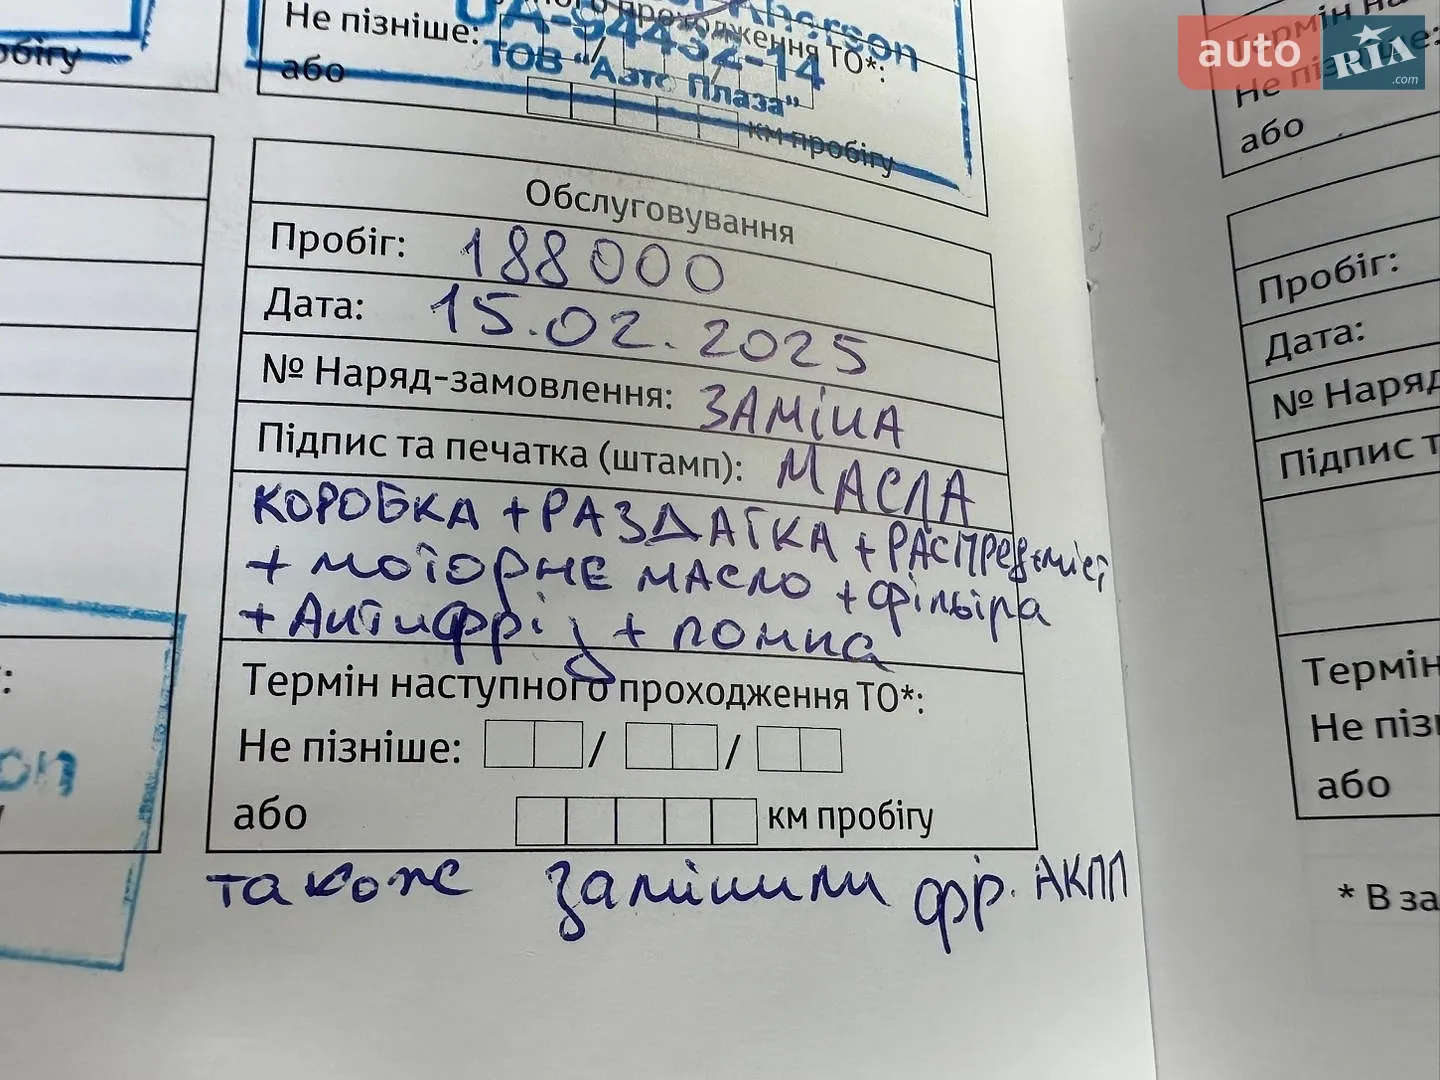 Не пізніше:
проходження ТО*:
UA-94432-14
Kherson
або
ТОВ "Авто Плаза"
км пробігу
Обслуговування
Пробіг: 188 000
Дата: 15.02.2025
№ Наряд-замовлення: ЗАМіНА
Підпис та печатка (штамп): МАСЛА
КОРОБКА + РАЗДАТКА +
+ моторне масло + фільтра
+ Антифріз + помпа
Термін наступного проходження ТО*:
Не пізніше: / /
або км пробігу
також замінили фр. АКПП
пробігу
:
on
Термін
Не пізніше:
або
Пробіг:
Дата:
№ Наряд
Підпис т
Термін
Не пізн
або
* В за
auto RIA .com